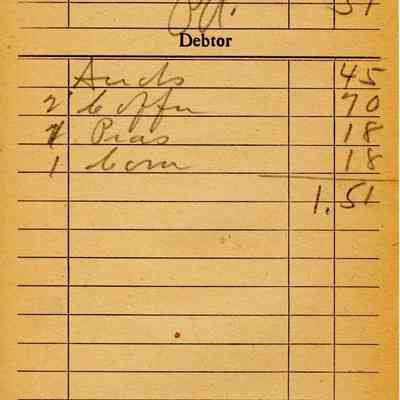 Pd. 51
Debtor
45
2 Coffee 70
1 Peas 18
1 Corn 18
1.51